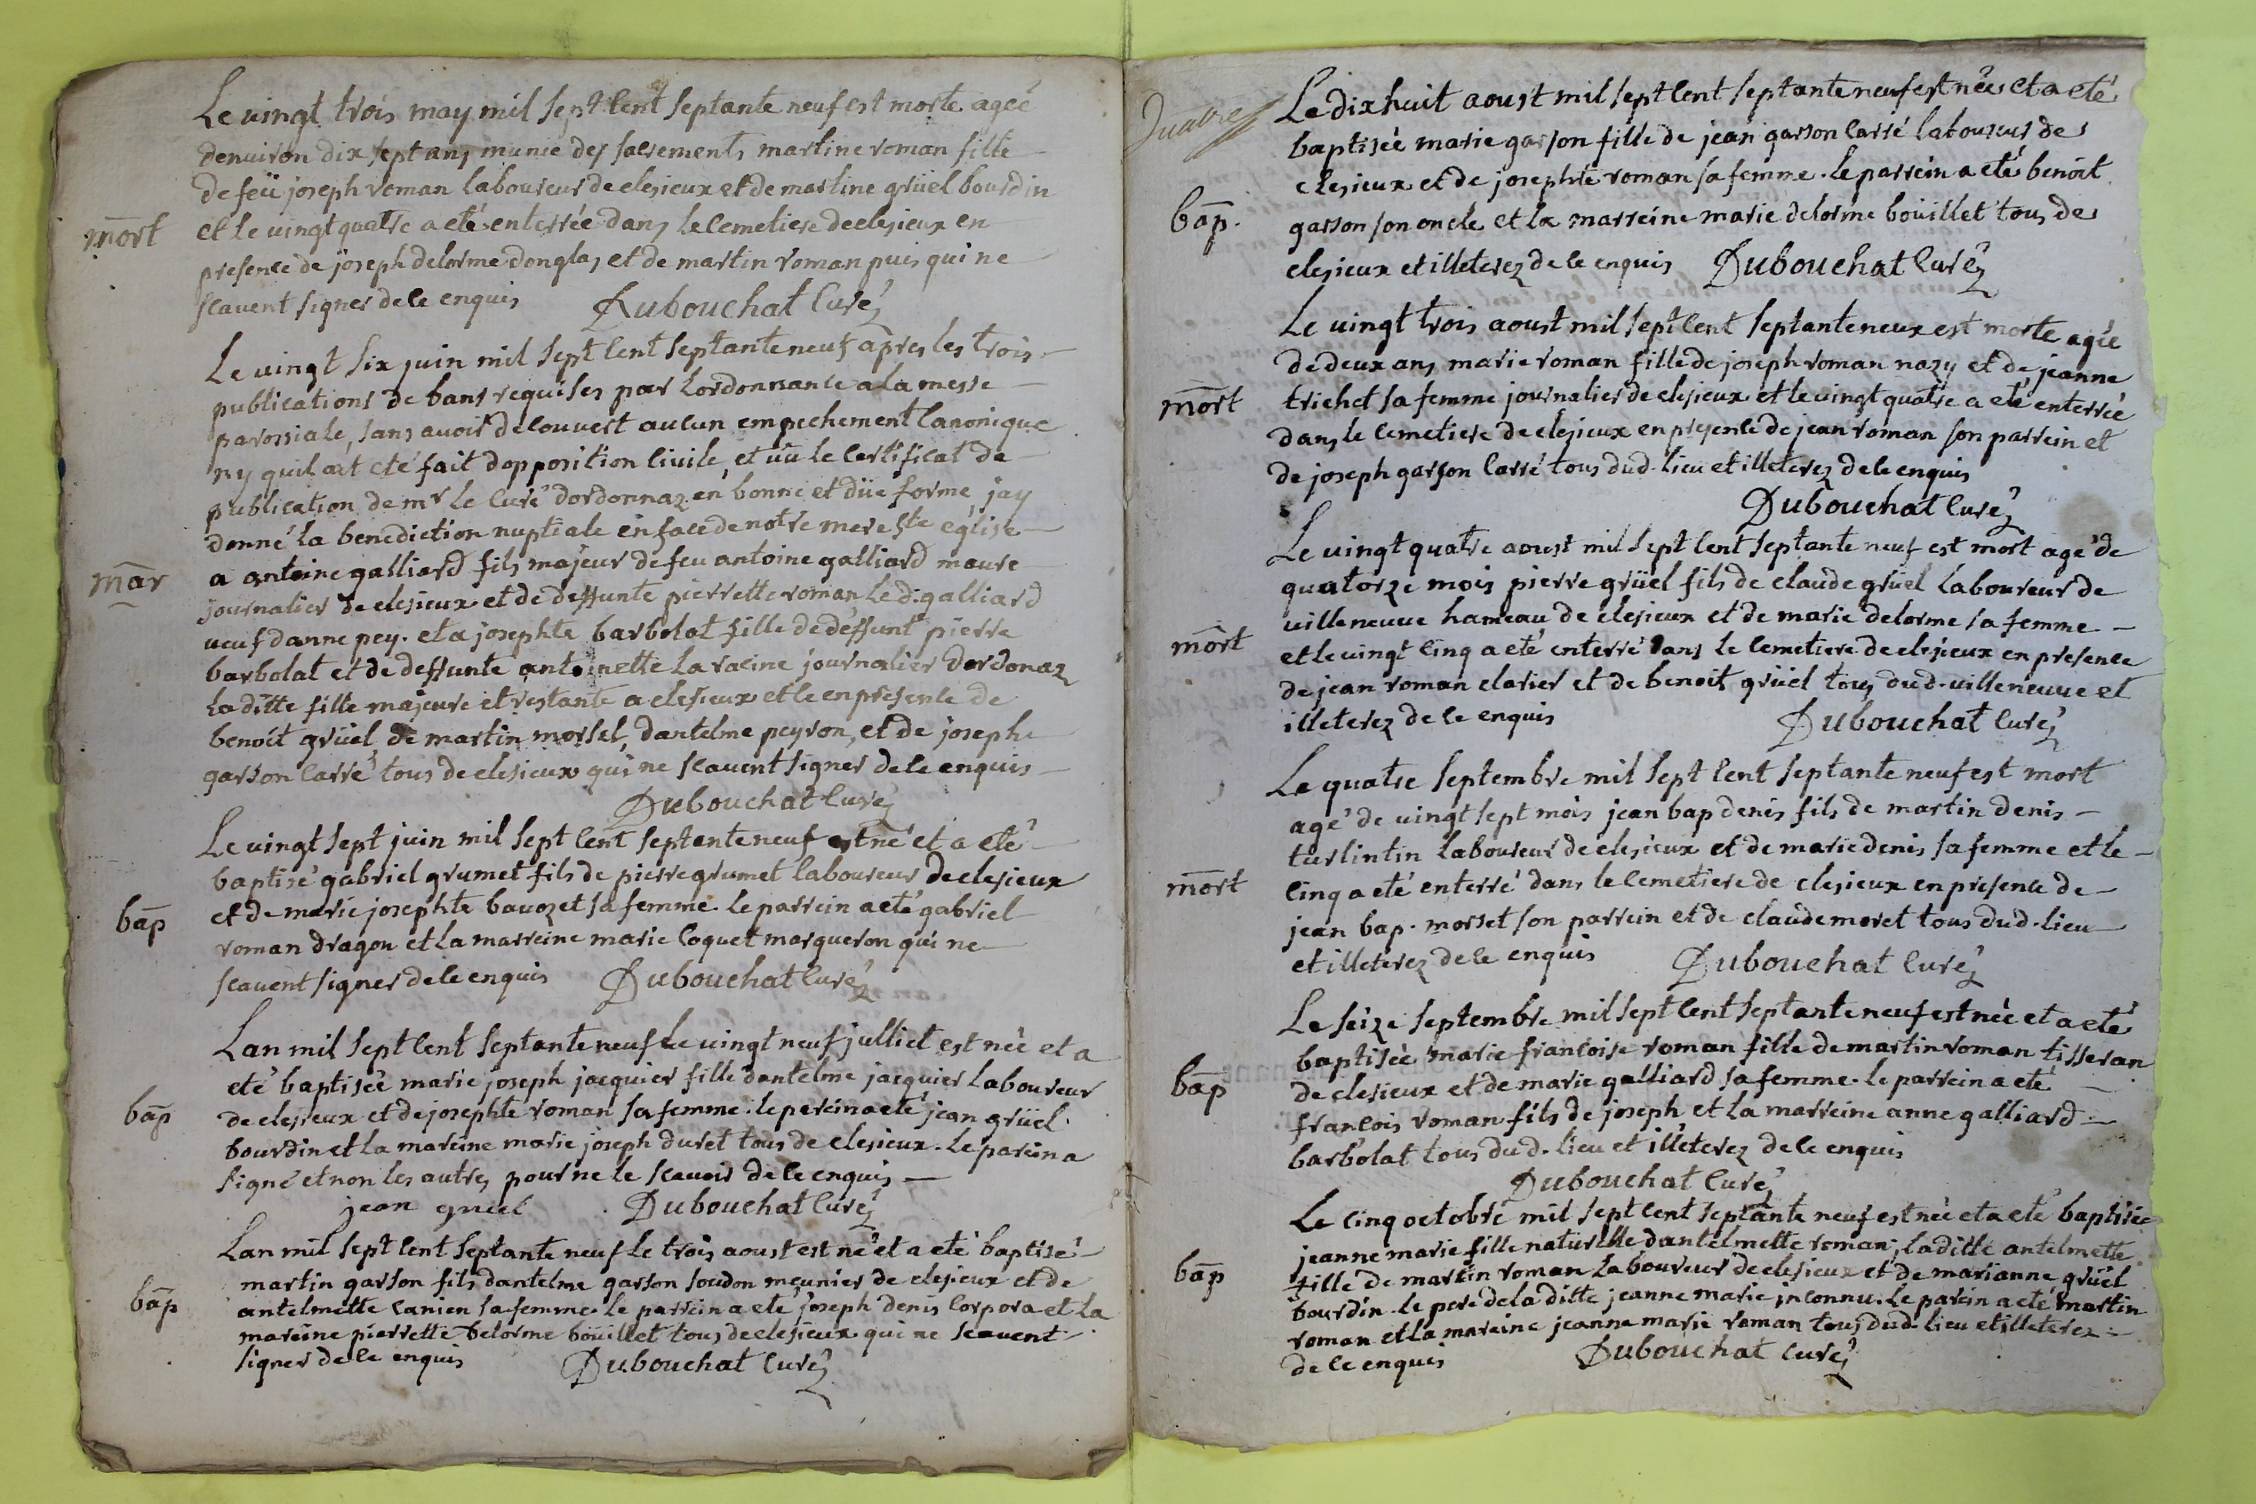 Le vingt trois may mil sept cent septante neuf est morte ageé
denuiron dix sept ans munie des sacrements martine roman fille
de feü joseph roman laboureur de clesieux et de martine grüel bourdin
mort
et le vingt quatre a eté enterrée dans le cemetiere de clesieux en
presence de joseph delorme donglas et de martin roman puis qui ne
scauent signer de ce enquis Dubouchat Curé
Le vingt six juin mil sept cent septante neuf apres les trois
publications de bans requises par lordonnance a la messe
parossiale, sans auoir decouuert aucun empechement Canonique
ny quil ait eté fait dopposition ciuile, et vû le certificat de
publication de mr le Curé dordonnaz en bonne et düe forme jay
donné la benediction nuptiale en face de notre mere ste église
mar
a antoine galliard fils majeur de feu antoine galliard maure
journalier de clesieux et de deffunte pierrette roman le d. galliard
ueuf danne pey. et a josephte barbolat fille de déffunt pierre
barbolat et de deffunte antoinette la racine journalier dordonaz
la ditte fille majeure et restante a clesieux et ce en presence de
benoit grüel, de martin morsel, dantelme peyron, et de joseph
garson Carré tous de clesieux qui ne scauent signer de ce enquis
Dubouchat Curé
Le vingt sept juin mil sept cent septante neuf est né et a eté
baptisé gabriel grumet fils de pierre grumet laboureur de clesieux
bap
et de marie josephte bauozet sa femme. le parrein a eté gabriel
roman dragon et la marreine marie Coquet marqueron qui ne
scauent signer de ce enquis Dubouchat Curé
Lan mil sept cent septante neuf le vingt neuf julliet est neé et a
eté baptisée marie joseph jacquier fille dantelme jacquier laboureur
bap
de clesieux et de josephte roman sa femme. le parein a eté jean grüel
bourdin et la mareine marie joseph duret tous de clesieux. Le parein a
signé et non les autres pour ne le scauoir de ce enquis
jean gruel Dubouchat Curé
Lan mil sept cent septante neuf le trois aoust est né et a eté baptisé
martin garson fils dantelme garson soudon meunier de clesieux et de
bap
antelmette canien sa femme. le parrein a eté joseph denis Corpora et la
mareine pierrette delorme boüillet tous de clesieux qui ne scauent
signer de ce enquis Dubouchat Curé
quatre
Le dix huit aoust mil sept cent septante neuf est neé et a eté
baptiseé marie garson fille de jean garson Carré laboureur de
clesieux et de josephte roman sa femme. le parrein a eté benoit
bap.
garson son oncle et la marreine marie delorme boüillet tous de
clesieux et illeterez de ce enquis Dubouchat Curé
Le vingt trois aoust mil sept cent septante neux est morte agée
de deux ans marie roman fille de joseph roman nazy et de jeanne
mort
trichet sa femme journalier de clesieux et le vingt quatre a eté enterrée
dans le cemetiere de clesieux en presence de jean roman son parrein et
de joseph garson Carré tous dud. lieu et illeterez de ce enquis
Dubouchat Curé
Le vingt quatre aoust mil sept cent septante neuf est mort agé de
quatorze mois pierre grüel fils de claude grüel laboureur de
villeneuue hameau de clesieux et de marie delorme sa femme
mort
et le vingt cinq a eté enterré dans le cemetiere de clesieux en presence
de jean roman clarier et de benoit grüel tous dud. villeneuue et
illeterez de ce enquis Dubouchat Curé
Le quatre septembre mil sept cent septante neuf est mort
agé de vingt sept mois jean bap denis fils de martin denis
turlintin laboureur de clesieux et de marie denis sa femme et le
mort
cinq a eté enterré dans le cemetiere de clesieux en presence de
jean bap. morset son parrein et de claude moret tous dud. lieu
et illeterez de ce enquis Dubouchat Curé
Le seize septembre mil sept cent septante neuf est neé et a eté
baptisée marie francoise roman fille de martin roman tisseran
bap
de clesieux et de marie galliard sa femme. le parrein a eté
francois roman fils de joseph et la marreine anne galliard
barbolat tous dud. lieu et illeterez de ce enquis
Dubouchat Curé
Le cinq octobre mil sept cent septante neuf est neé et a eté baptisée
jeanne marie fille naturelle dantelmette roman, la ditte antelmette
bap
fille de martin roman laboureur de clesieux et de marianne grüel
bourdin. le pere de la ditte jeanne marie inconnu. le parein a eté martin
roman et la mareine jeanne marie roman tous dud. lieu et illeterez
de ce enquis Dubouchat Curé